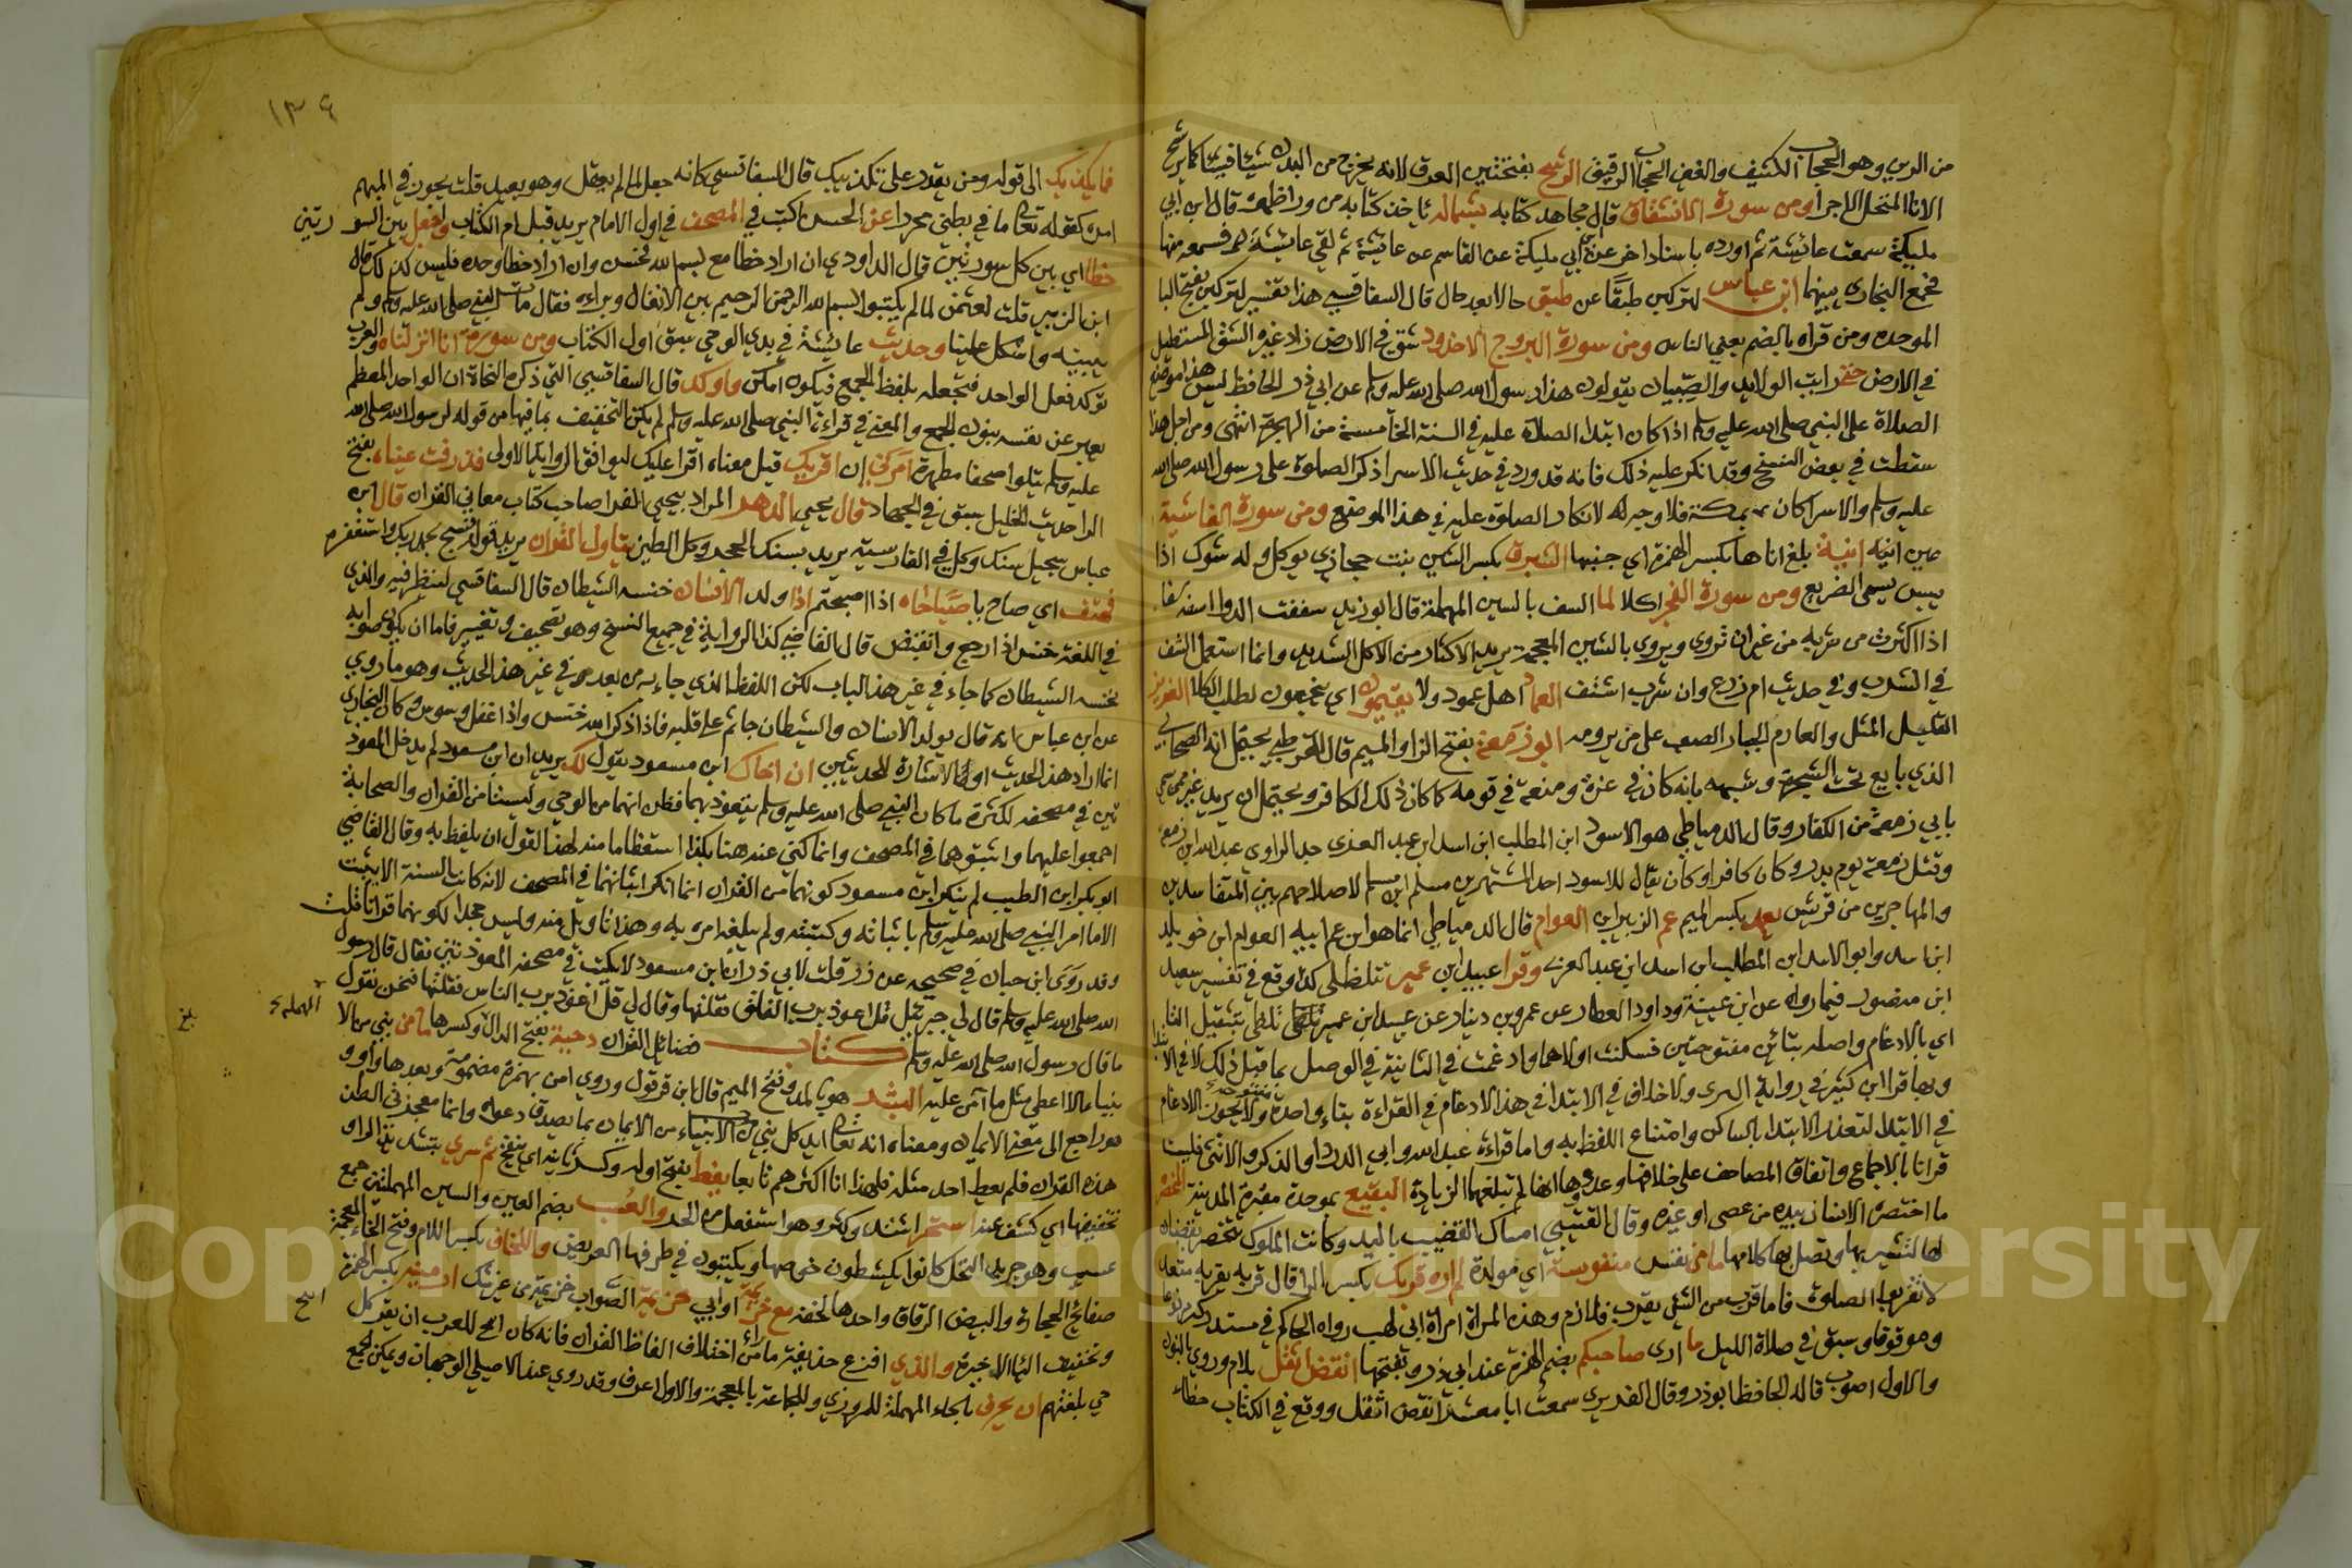 من الرين وهو الحجاب الكثيف والغين الحجاب الرقيق الرشح بفتحتين العرق لانه يخرج من البدن شيئا فشيئا كما يرشح
الانا المتخلل الاجزا ومن سورة الانشقاق قال مجاهد كتابه بشماله ياخذ كتابه من ورا ظهره قال ابن ابي
مليكة سمعت عائشة ثم اورده باسناد اخر عن ابن ابي مليكة عن القاسم عن عائشة ثم لقي عايشة فسمعه منها
فجمع البخاري بينهما ابن عباس لتركبن طبقا عن طبق حالا بعد حال قال السفاقسي هذا تفسير لتركبن بفتح البا
الموحده ومن قراه بالضم يعني الناس ومن سورة البروج الاخدود شق في الارض زاد غيره الشق المستطيل
في الارض حتى رايت الولايد والصبيان يقولون هذا رسول الله صلى الله عليه وسلم عن ابي ذر الحافظ ليس هذا موضع
الصلاة على النبي صلى الله عليه وسلم اذا كان ابتدا الصلاة عليه في السنة الخامسة من الهجرة انتهى ومن اجل هذا
سقطت في بعض النسخ وقد انكر عليه ذلك فانه قد ورد في حديث الاسرا ذكر الصلوة على رسول الله صلى الله
عليه وسلم والاسرا كان بمكة فلا وجه لانكار الصلوة عليه في هذا الموضع ومن سورة الغاشية
عين انيه انية بلغ اناها بكسر الهمزة اي حينها الشبرق بكسر الشين نبت حجازي يوكل وله شوك اذا
يبس يسمى الضريع ومن سورة الفجر اكلا لما السف بالسين المهملة قال ابو زيد سففت الدوا اسفه سفا
اذا اكثرت من شربه من غير ان تروى ويروى بالشين المعجمة يريد الاكثار من الاكل الشديد وانما استعمل الشف
في الشرب وفي حديث ام زرع وان شرب اشتف العماد اهل عمود ولا يقيمون اي ينتجعون لطلب الكلا العزيز
القليل المثل والعارم الجبار الصعب على من يرومه ابو زمعة بفتح الزاي والميم قال القرطبي يحتمل انه الصحابي
الذي بايع تحت الشجرة وشبهه بانه كان في عزة ومنعة في قومه كما كان ذلك الكافر ويحتمل ان يريد غيره ممن سمي
بابي زمعة من الكفار وقال الدمياطي هو الاسود ابن المطلب ابن اسد ابن عبد العزى جد الراوي عبد الله ابن زمعة
وقتل زمعة يوم بدر وكان كافرا وكان يقال للاسود احد المستهزءين مسلم ابن مسلم لاصلاحهم بين المتفاسدين
والمهاجرين من قريش بعد بكسر الميم عم الزبير ابن العوام قال الدمياطي انما هو ابن عم ابيه العوام ابن خويلد
ابن اسد وابو الاسد ابن المطلب ابن اسد ابن عبد العزى وقرا عبيد ابن عمير تتلظى كذا وقع في تفسير سعيد
ابن منصور فيما رواه عن ابن عيينة وداود العطار عن عمرو بن دينار عن عبيد ابن عمير تلظى بتثقيل التا
اي بالادغام واصله بتائين مفتوحتين فسكنت اولاهما وادغمت في الثانية في الوصل بما قبل ذلك لا في الابتدا
وبها قرا ابن كثير في رواية البزي ولا خلاف في الابتدا في هذا الادغام في القراءة بتاء واحدة مفتوحة ولا يجوز الادغام
في الابتدا لتعذر الابتدا بالساكن وامتناع اللفظ به واما قراءة عبد الله وابي الدردا والذكر والانثى فليست
قرانا بالاجماع واتفاق المصاحف على خلافها انها لم تبلغهما الزيادة البقيع بموحدة مقبرة المدينة المخصرة
ما اختصره الانسان بيده من عصى او غيره وقال القتيبي امساك القضيب باليد وكانت الملوك تتخصر بقضبان
لها تشير بها وتصل بها كلامها ما من نفس منفوسة اي مولودة لم اره قربك بكسر الرا قال قربه يقربه متعديا
لا تقربوا الصلوة فاما قرب من الشئ يقرب فلازم وهذه المراة امراة ابي لهب رواه الحاكم في مستدركه
وموقوفا وسبق في صلاة الليل ما ارى صاحبكم بضم الهمزة عند ابي ذر وبفتحها انقض اثقل بلام وروي بالنون
والاول اصوب قاله الحافظ ابو ذر وقال الفربري سمعت ابا معشر انقض اثقل ووقع في الكتاب خطاء
١٣٩
فما يكذبك الى قوله ومن يقدر على تكذيبك قال السفاقسي كانه جعل ما لمن يعقل وهو بعيد قلت يجوز في المبهم
امره كقوله تعالى ما في بطني محررا عن الحسن اكتب في المصحف في اول الامام يريد قبل ام الكتاب واجعل بين السورتين
خطا اي بين كل سورتين قال الداودي ان اراد خطا مع بسم الله فحسن وان اراد خطا وحده فليس كذلك قال
ابن الزبير قلت لعثمن لما لم يكتبوا بسم الله الرحمن الرحيم بين الانفال وبراءه فقال مات النبي صلى الله عليه وسلم ولم
يبينه واشكل علينا وحديث عائشة في بدي الوحي سبق اول الكتاب ومن سورة انا انزلناه والعرب
توكد فعل الواحد فتجعله بلفظ الجمع فيكون امكن واوكد قال السفاقسي التي ذكره النحاة ان الواحد المعظم
يعبر عن نفسه بنون الجمع والمعنى في قراءة النبي صلى الله عليه وسلم لم يكن التخفيف بما فيها من قوله لرسول الله صلى الله
عليه وسلم يتلوا صحفا مطهرة امرني ان اقريك قيل معناه اقرا عليك ليوافق الرواية الاولى فذرفت عيناه بفتح
الرا حديث الخيل سبق في الجهاد قال يحيى الدهر المراد بيحيى الفرا صاحب كتاب معاني القران قال ابن
عباس سجيل سنك وكل في الفارسية يريد بسنك الحجر وكل الطين يتاول القران يريد قوله فسبح بحمد ربك واستغفره
فهتف اي صاح يا صباحاه اذا اصبحتم اذا ولد الانسان خنسه الشيطان قال السفاقسي لينظر فيه والذي
في اللغة خنس اذا رجع وانقبض قال القاضي كذا الرواية في جميع النسخ وهو تصحيف وتغيير فاما ان يكون صوابه
نخسه الشيطان كما جاء في غير هذا الباب لكن اللفظ الذي جاء به من بعد في غير هذا الحديث وهو ما روي
عن ابن عباس انه قال يولد الانسان والشيطان جاثم على قلبه فاذا ذكر الله خنس واذا غفل وسوس وكان البخاري
انما اراد هذا الحديث او الاشارة للحديثين ان اخاك ابن مسعود يقول كذا يريد ان ابن مسعود لم يدخل المعوذ
تين في مصحفه لكثرة ما كان النبي صلى الله عليه وسلم يتعوذ بهما فظن انهما من الوحي وليستا من القران والصحابة
اجمعوا عليهما واثبتوهما في المصحف وانما كنى عنه هنا بكذا استعظاما منه لهذا القول ان يلفظ به وقال القاضي
ابو بكر ابن الطيب لم ينكر ابن مسعود كونهما من القران انما انكر اثباتهما في المصحف لانه كانت السنة الا يثبت
الا ما امر النبي صلى الله عليه وسلم باثباته وكتبته ولم يبلغه امره به وهذا تاويل منه وليس جحدا لكونهما قرانا قلت
وقد روى ابن حبان في صحيحه عن زر قلت لابي ذر ان ابن مسعود لا يكتب في مصحفه المعوذتين فقال قال رسول
الله صلى الله عليه وسلم قال لي جبريل قل اعوذ برب الفلق فقلتها وقال لي قل اعوذ برب الناس فقلتها فنحن نقول
ما قال رسول الله صلى الله عليه وسلم كتاب فضائل القران دحية بفتح الدال وكسرها ما من نبي من الا
نبياء الا اعطي مثل ما آمن عليه البشر هو بالمد وفتح الميم قال ابن قرقول وروي امن بهمزة مضمومة وبعدها واو
هو راجع الى معنى الايمان ومعناه انه تعالى ايد كل نبي من الانبياء من الايمان بما يصدق دعواه وانما معجزتي
هذه القران فلم يعط احد مثله فلهذا انا اكثرهم تابعا يغط بفتح اوله وكسر ثانيه اي ينفخ ثم سري بتشديد الرا
تخفيفها اي كشف عنه استحر اشتد وكثر وهو استفعل من الحر والعسب بضم العين والسين المهملتين جمع
عسيب وهو جريد النخل كانوا يكشطون خوصها ويكتبون في طرفها العريض واللخاف بكسر اللام وفتح الخاء المعجمة
صفائح الحجارة والبيض الرقاق واحدها لخفه مع خزيمة او ابي خزيمة الصواب خزيمة من غير شك ارمينية بكسر الهمزة
وتخفيف اليا الاخيرة والذي افزع حذيفة ما من اختلاف الفاظ القران فانه كان ابيح للعرب ان يقرا كل
حي بلغتهم ان يحرق بالحاء المهملة للمروزي وللجماعة بالمعجمة والاول اعرف وقد روي عن الاصيلي الوجهان ويمكن الجمع
المهملة
بلغ
Copyright © King Saud University